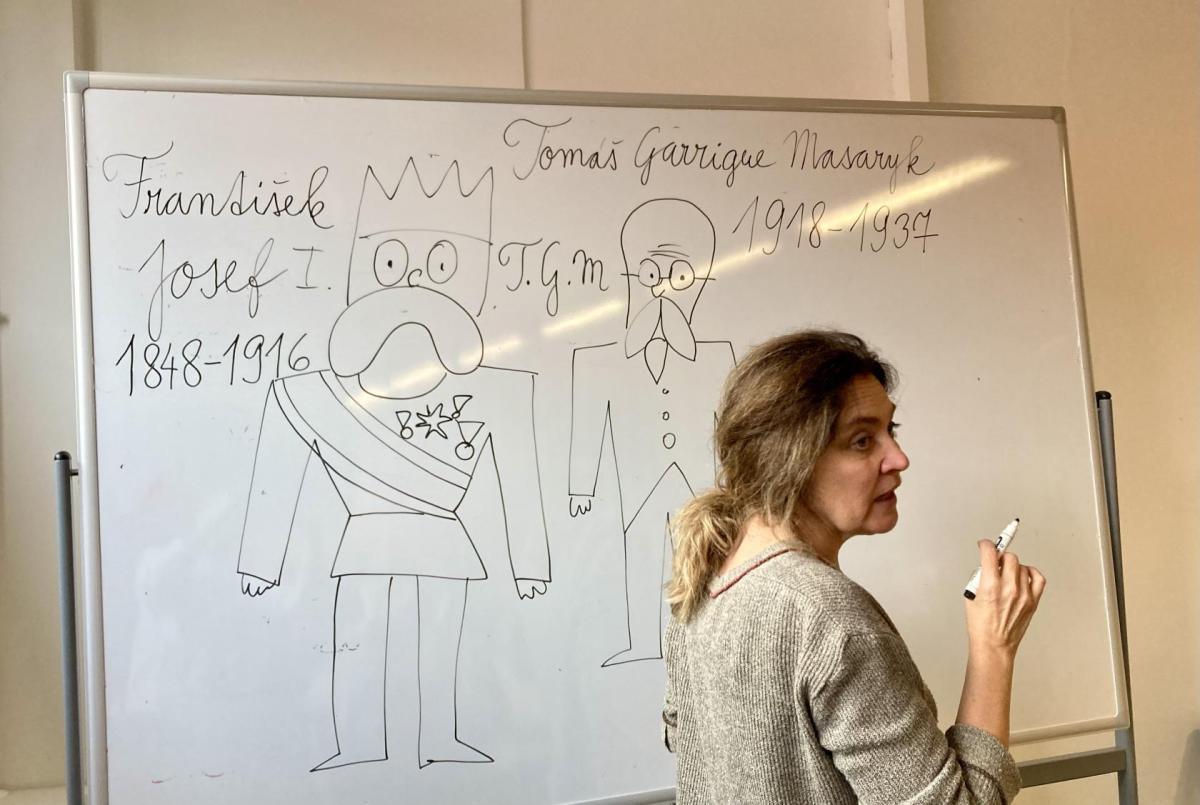 František
Josef I.
1848-1916
Tomáš Garrigue Masaryk
1918-1937
T.G.M